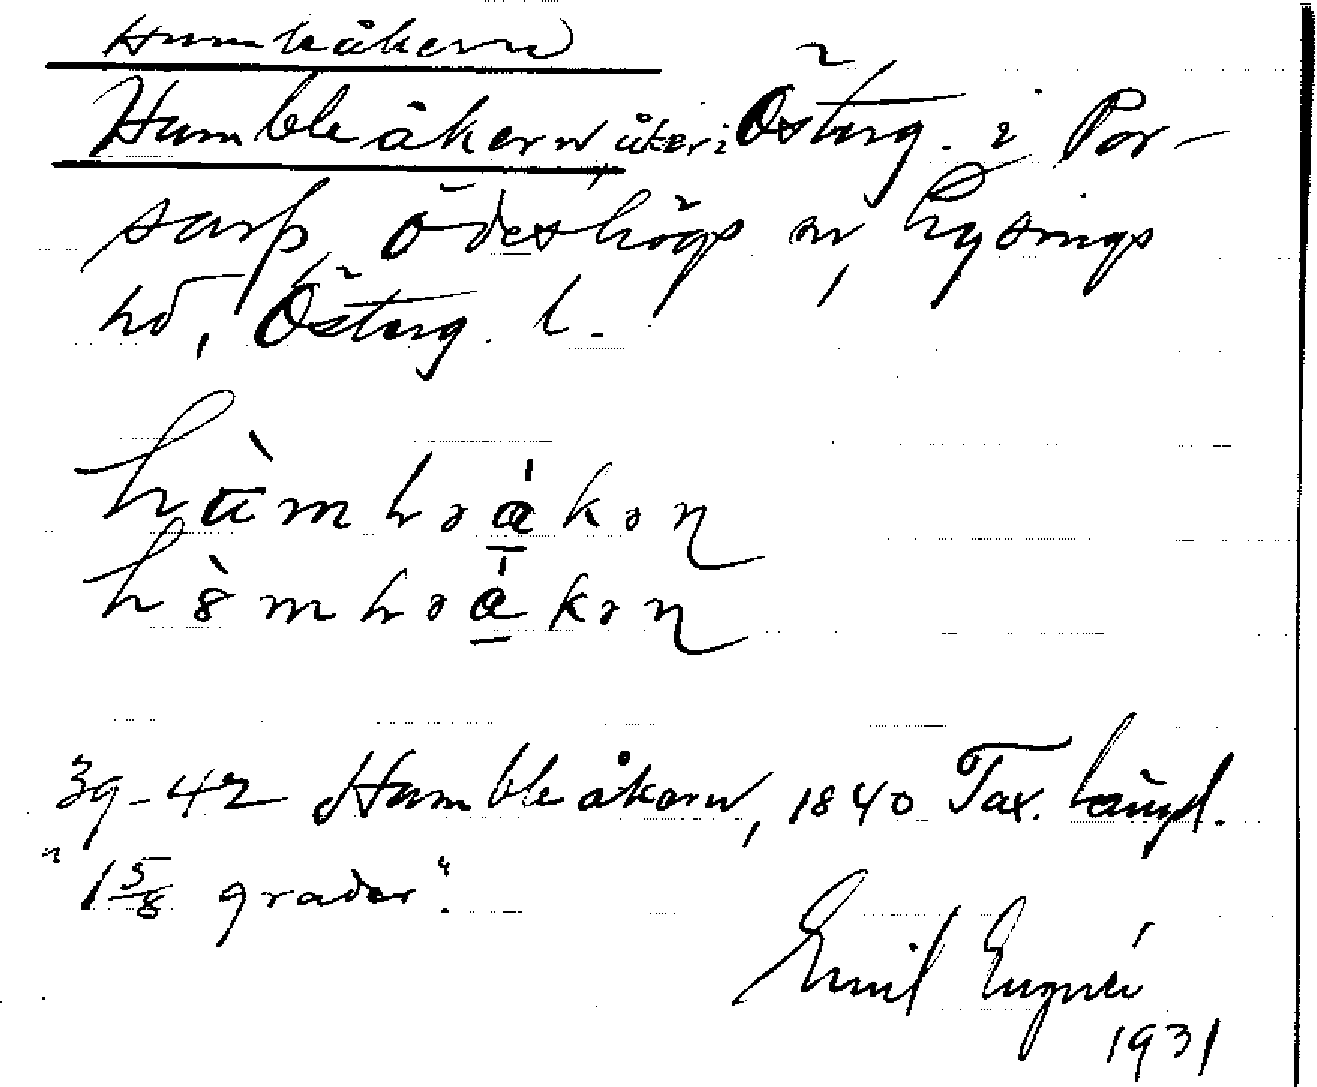 Humbåkern
Humbleåkern, åker i Österg. i Por-
sarp, Ödeshögs sn, Lysings
hd, Österg. l.
hùmbəåkən
hòmbəåkən
39-42 Humbleåkern, 1840 Tax. längd.
"1 5/8 grader".
Emil Engnér
1931